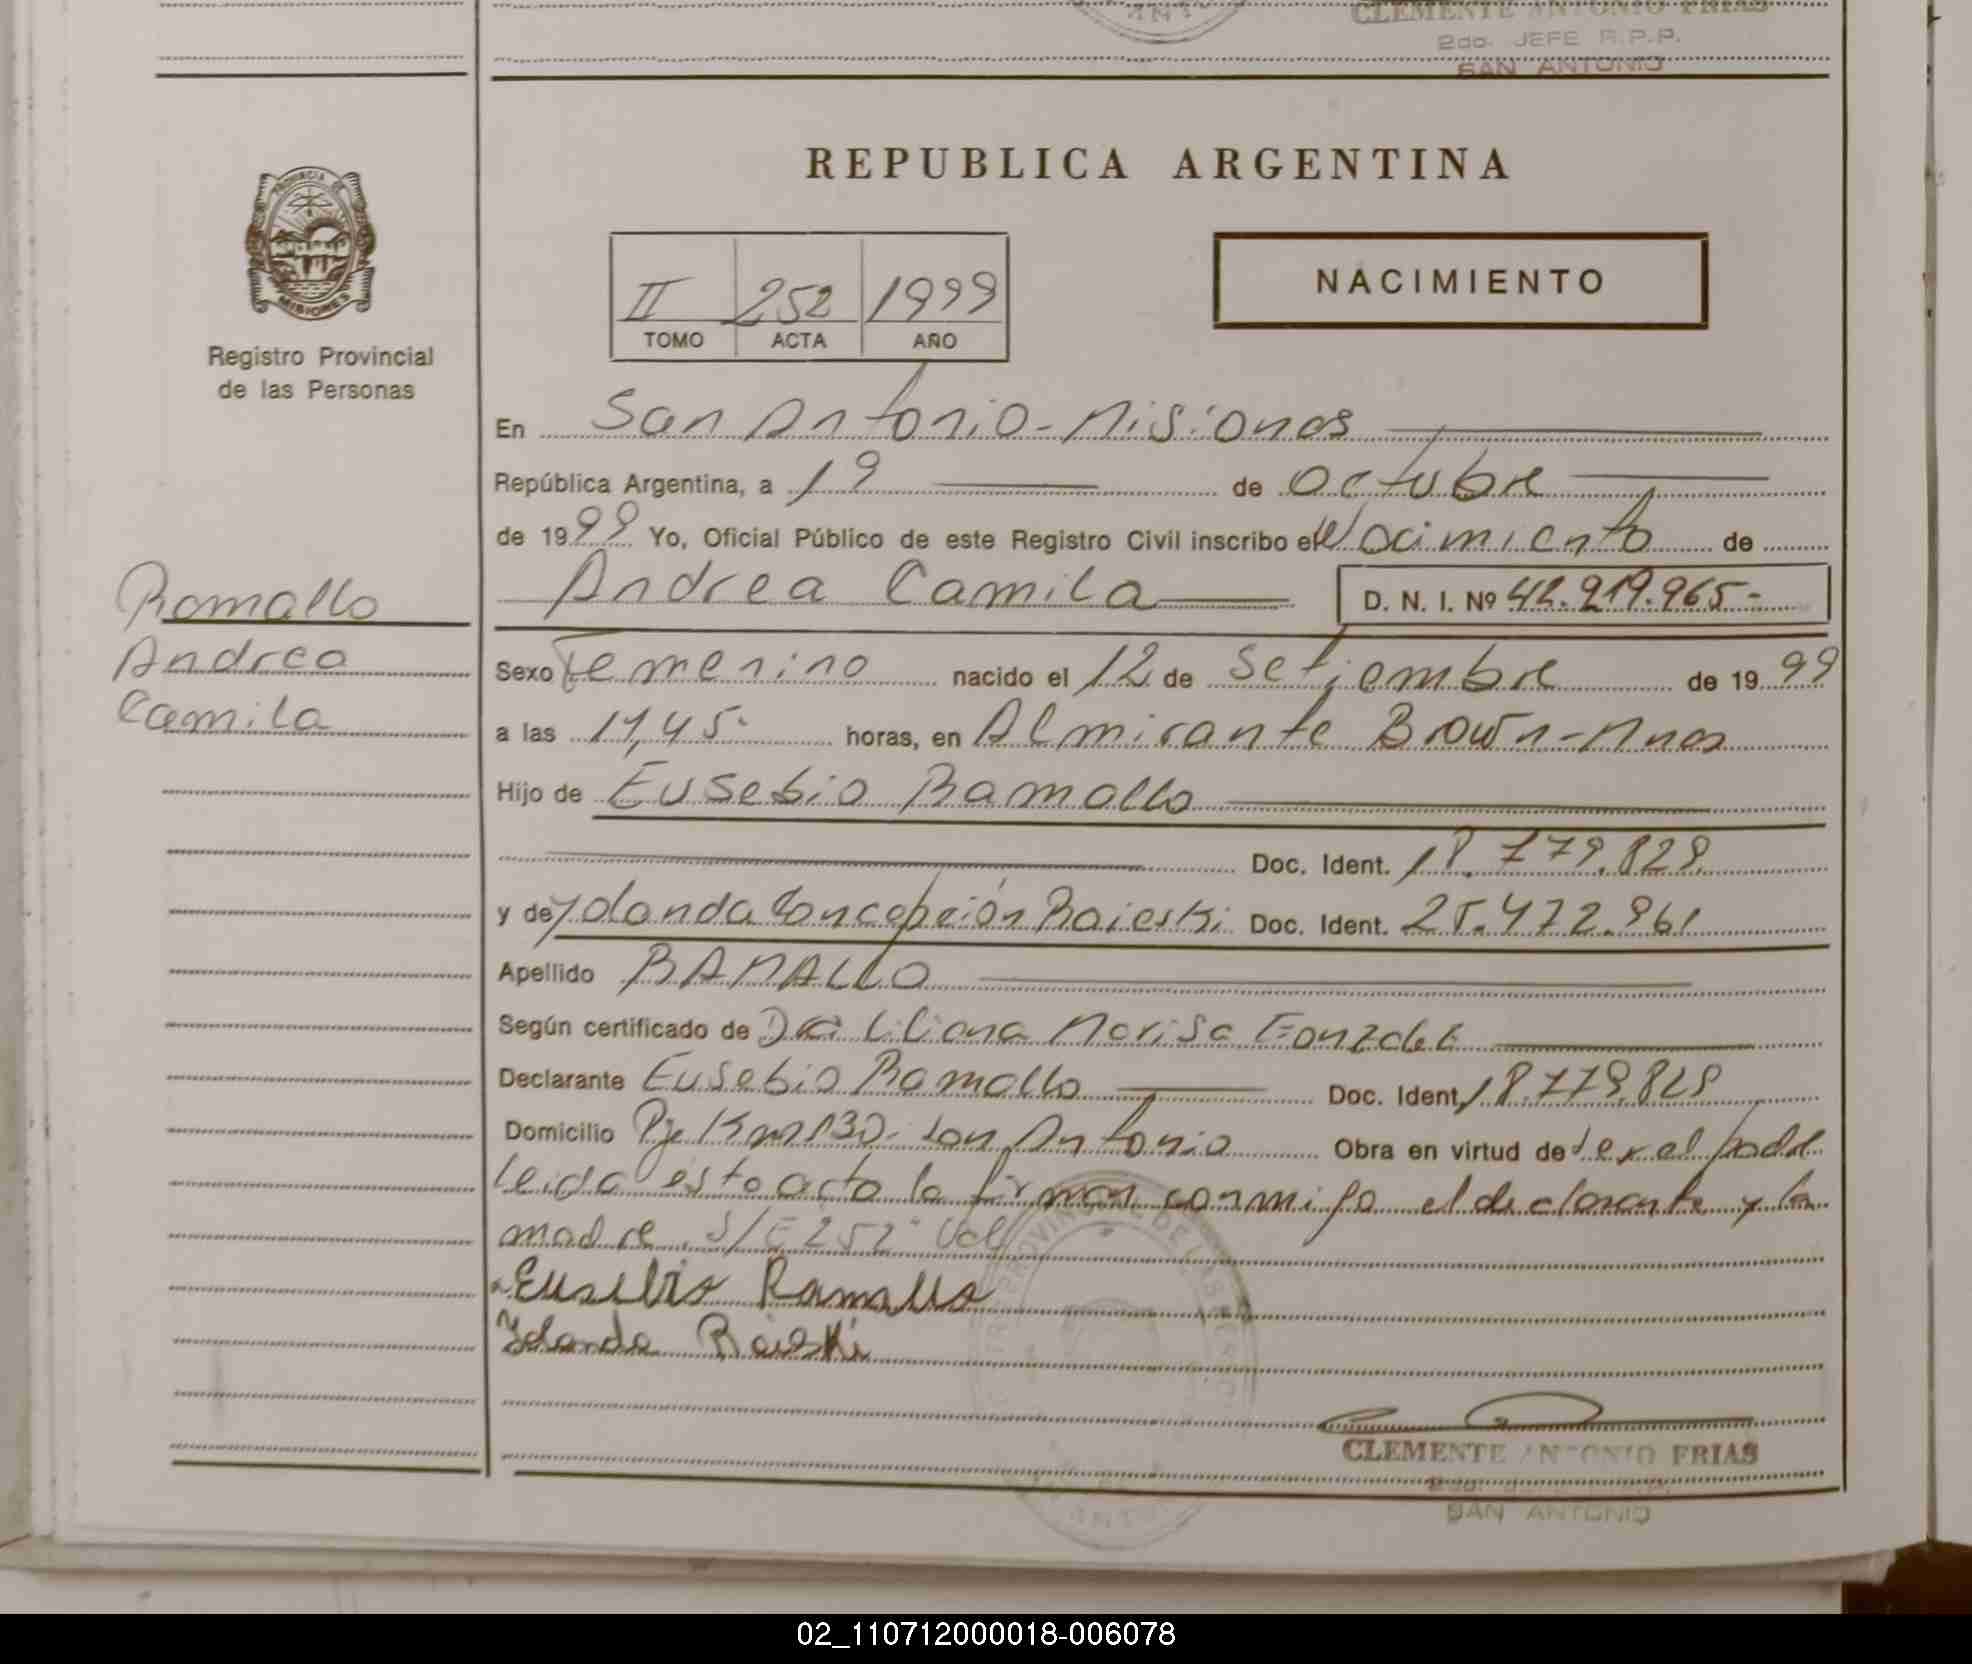 CLEMENTE ANTONIO FRIAS
2do. JEFE R.P.P.
SAN ANTONIO
REPUBLICA ARGENTINA
PROVINCIA DE
MISIONES
Registro Provincial
de las Personas
II 252 1999
TOMO ACTA AÑO
NACIMIENTO
En San Antonio-Misiones
República Argentina, a 19 de octubre
de 1999 Yo, Oficial Público de este Registro Civil inscribo el Nacimiento de
Andrea Camila D. N. I. Nº 42.219.965-
Ramallo
Andrea
Camila
Sexo Femenino nacido el 12 de Setiembre de 1999
a las 11,45 horas, en Almirante Brown-Mnes
Hijo de Eusebio Ramallo
Doc. Ident. 18.779.829
y de Yolanda Concepción Raieski Doc. Ident. 25.472.961
Apellido RAMALLO
Según certificado de Dra Liliana Marisa Gonzalez
Declarante Eusebio Ramallo Doc. Ident. 18.779.829
Domicilio Pje Km 130-San Antonio Obra en virtud de ser el padre
Leida esta acta la firman conmigo el declarante y la
madre. S/E 252 Vale
Eusebio Ramallo
Yolanda Raieski
CLEMENTE ANTONIO FRIAS
SAN ANTONIO
02_110712000018-006078